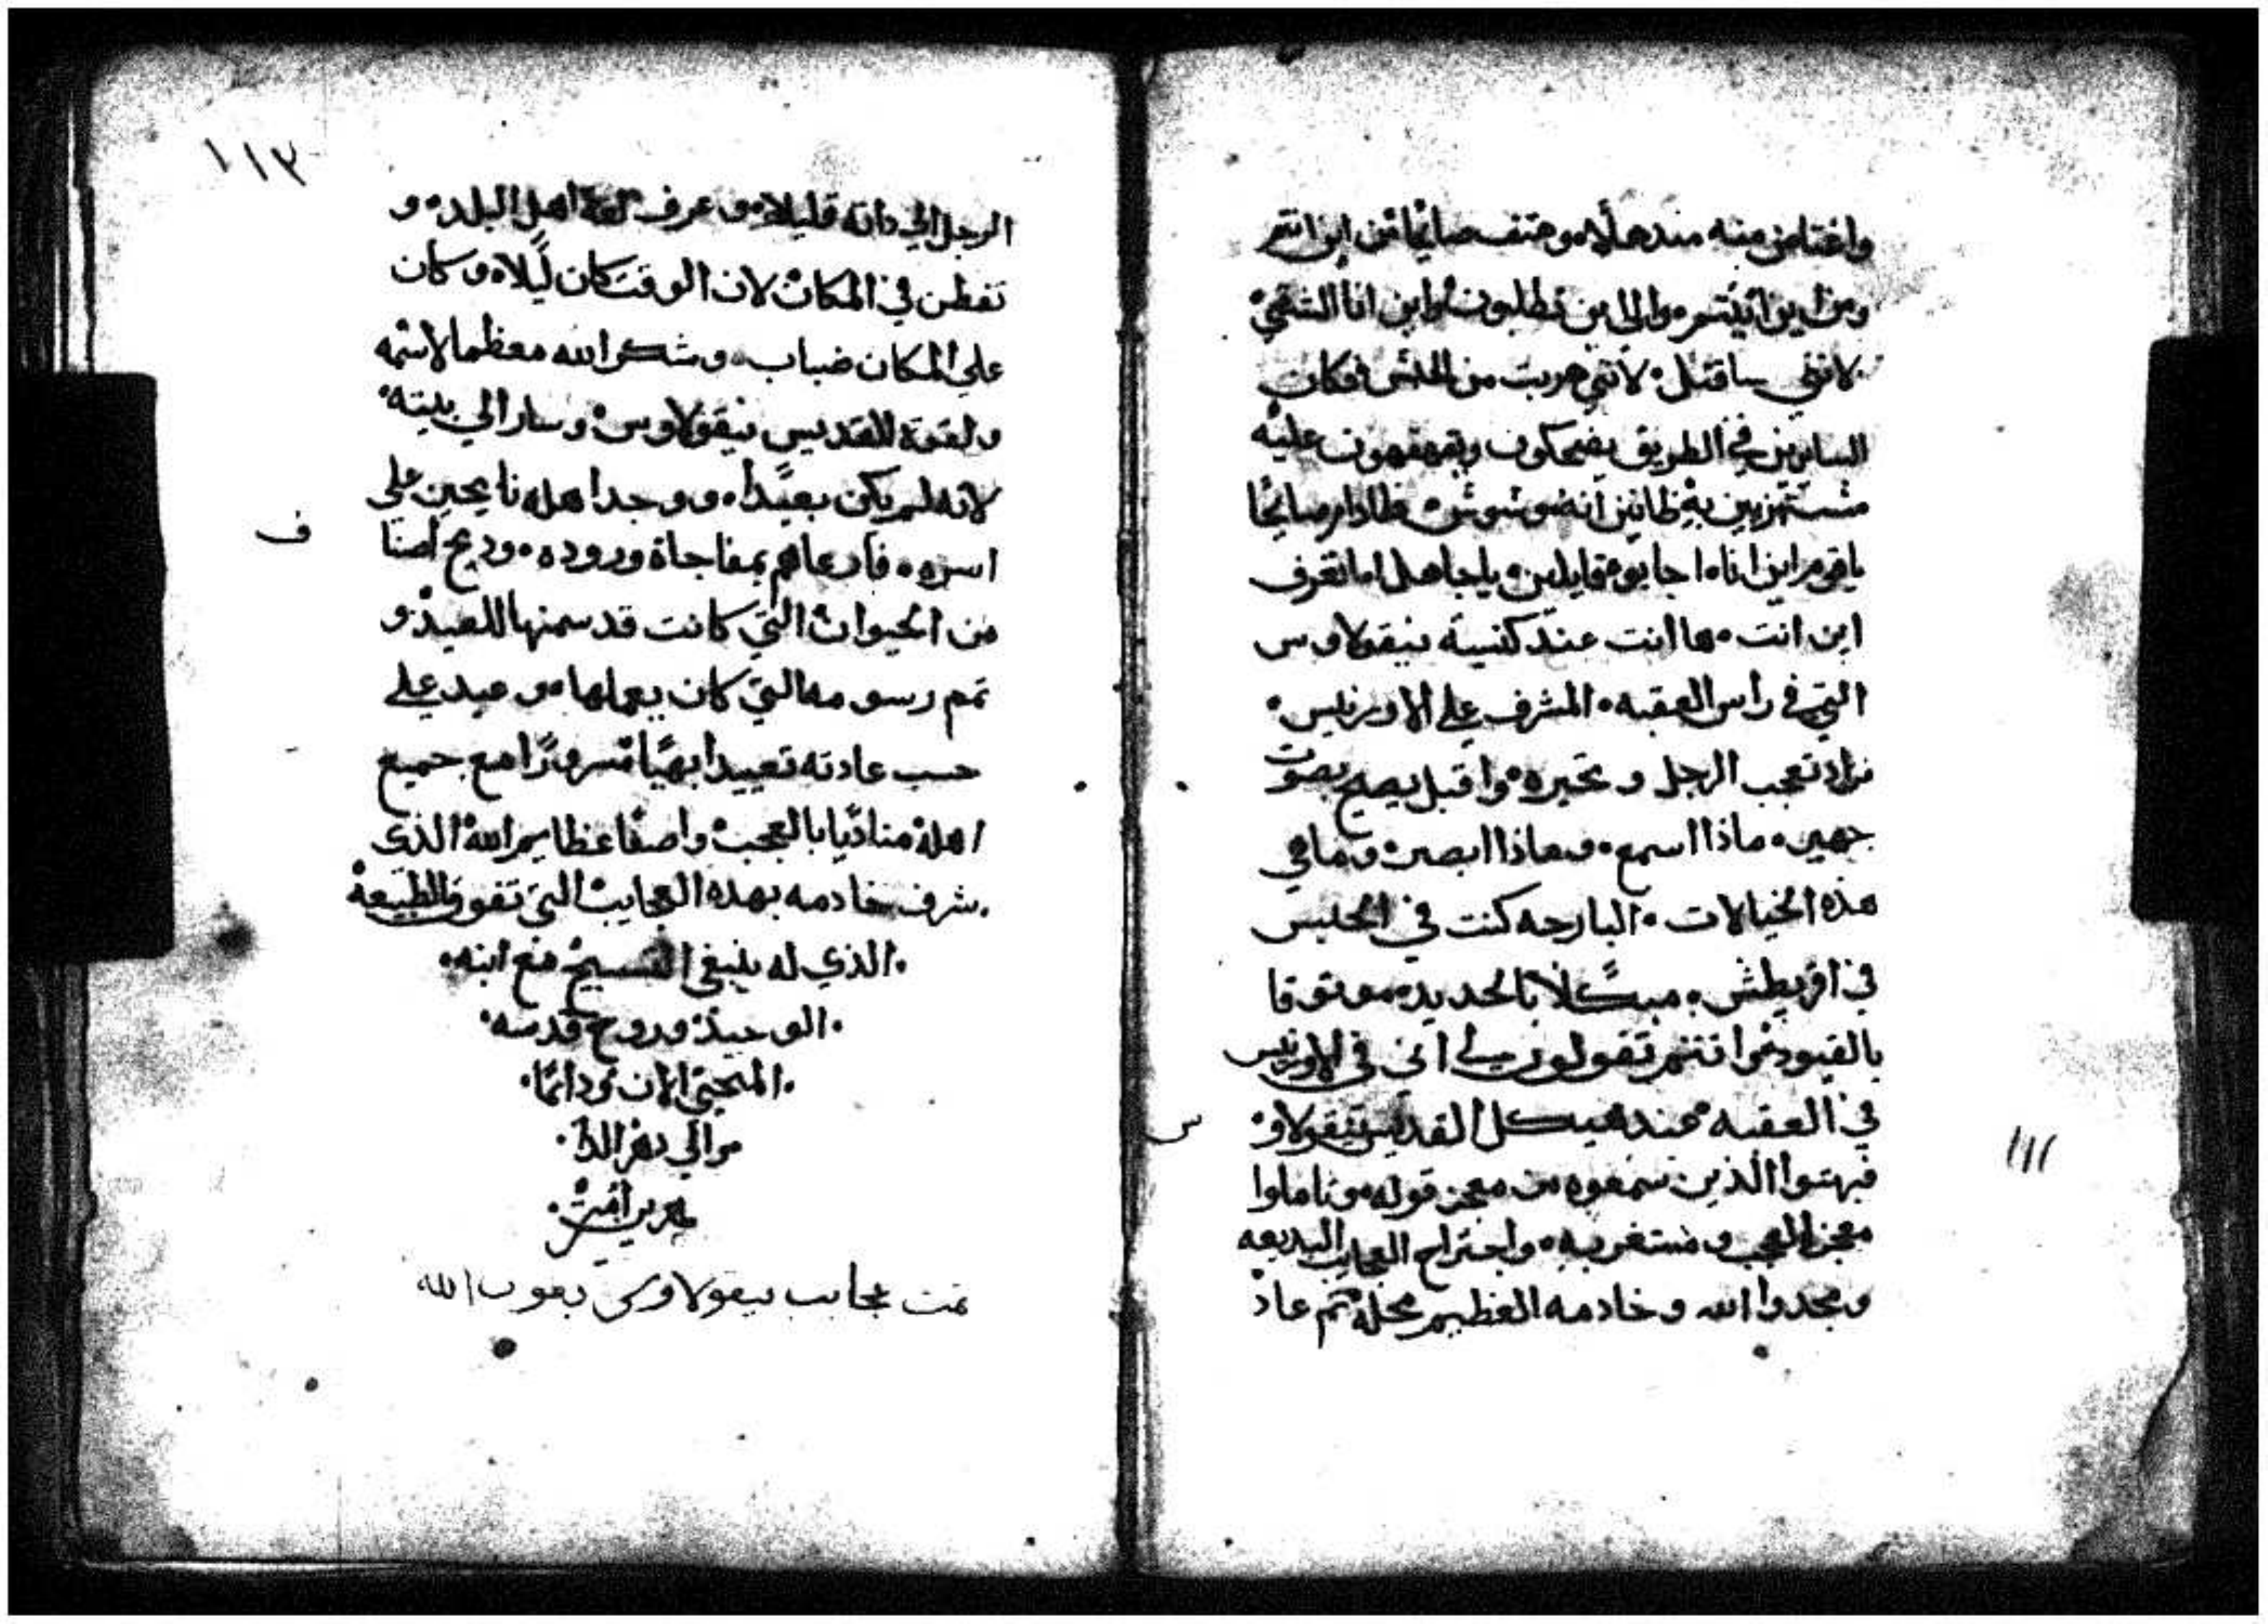 واغتاض منه مندهلاً وهتف صايحًا من اين انتم
ومن اين اتيتم والي اين تطلبون واين انا الشقي
لانني ساقتل لانني هربت من الحبس فكان
السايرين في الطريق يضحكون ويقهقهون عليه
مستهزيين به ظانين انه موسوس فلما دام صايحًا
ياقوم اين انا اجابوه قايلين ياجاهل اما تعرف
اين انت ها انت عند كنيسة نيقولاوس
التي في راس العقبه المشرف علي الاورنيس
فزاد تعجب الرجل وتحيره واقبل يصيح بصوت
جهير ماذا اسمع وماذا ابصر وما هي
هذه الخيالات البارحه كنت في الحبس
في اقريطش مبكلا بالحديد موثوقا
بالقيود وانتم تقولون لي انى في الاورنيس
في العقبه عند هيكل القديس نيقولاو
س
فبهتوا الذين سمعوه من معجز قوله وتاملوا
معجز العجب ومستغربه واجتراح العجايب البديعه
ومجدوا الله وخادمه العظيم محله ثم عاد
١١٢
١١٣
الرجل الي داته قليلا وعرف لغة اهل البلد و
تفطن في المكان لان الوقت كان ليلا وكان
علي المكان ضباب وشكر الله معظما لاسمه
ولقوة القديس نيقولاوس وسار الي بيته
لانه لم يكن بعيدًا ووجد اهله نايحين علي
ف
اسره فادعاهم بمفاجاة وروده ودبح اصنا
من الحيوان التي كانت قد سمنها للعيد و
تمم رسومه التي كان يعملها وعيد علي
حسب عادته تعييدا بهيًا مسرورًا مع جميع
اهله مناديًا بالعجب واصفا عظايم الله الذي
شرف خادمه بهده العجايب التي تفوق الطبيعة
الذي له ينبغي التسبيح مع ابنه
الوحيد وروح قدسه
المحيي الان ودايمًا
والي دهر الدا
هرين امين
تمت عجايب نيقولاوس بعون الله